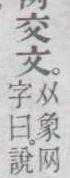 交文。
象网
字曰。說